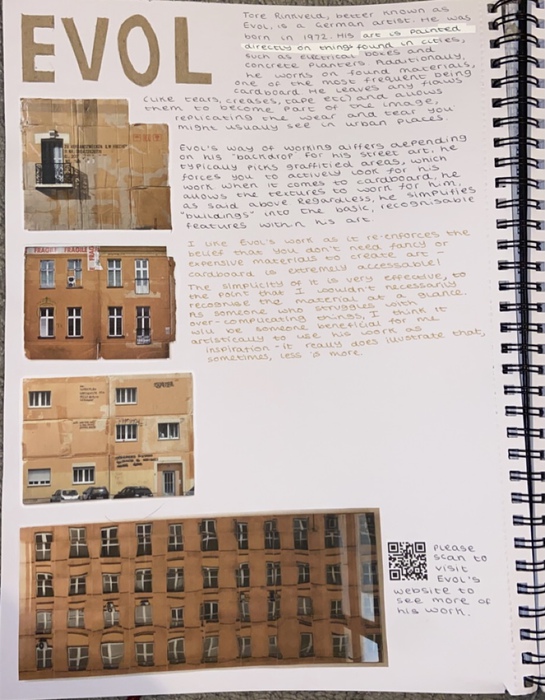 EVOL
Tore Rinkveld, better known as
Evol, is a German artist. He was
born in 1972. His art is painted
directly on things found in cities,
such as electrical boxes and
concrete planters. Additionally,
he works on found materials,
one of the most frequent being
cardboard. He leaves any flaws
(like tears, creases, tape etc) and allows
them to become part of the image,
replicating the wear and tear you
might usually see in urban places.
Evol's way of working differs depending
on his "backdrop". For his street art, he
typically picks graffitied areas, which
forces you to actively look for his
work. When it comes to cardboard, he
allows the textures to work for him,
as said above. Regardless, he simplifies
"buildings" into the basic, recognisable
features within his art.
I like Evol's work as it re-enforces the
belief that you don't need fancy or
expensive materials to create art -
cardboard is extremely accessable!
The simplicity of it is very effective, to
the point that I wouldn't necessarily
recognise the material at a glance.
As someone who struggles with
over-complicating things, I think it
will be someone beneficial for me
artistically to use his work as
inspiration - it really does illustrate that,
sometimes, less is more.
FRAGILE
Please
scan to
visit
Evol's
website to
see more of
his work.